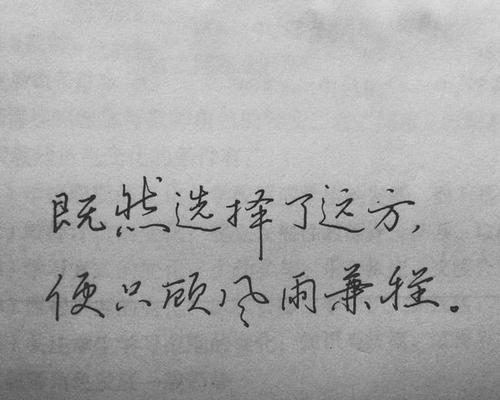 既然选择了远方,
便只顾风雨兼程。